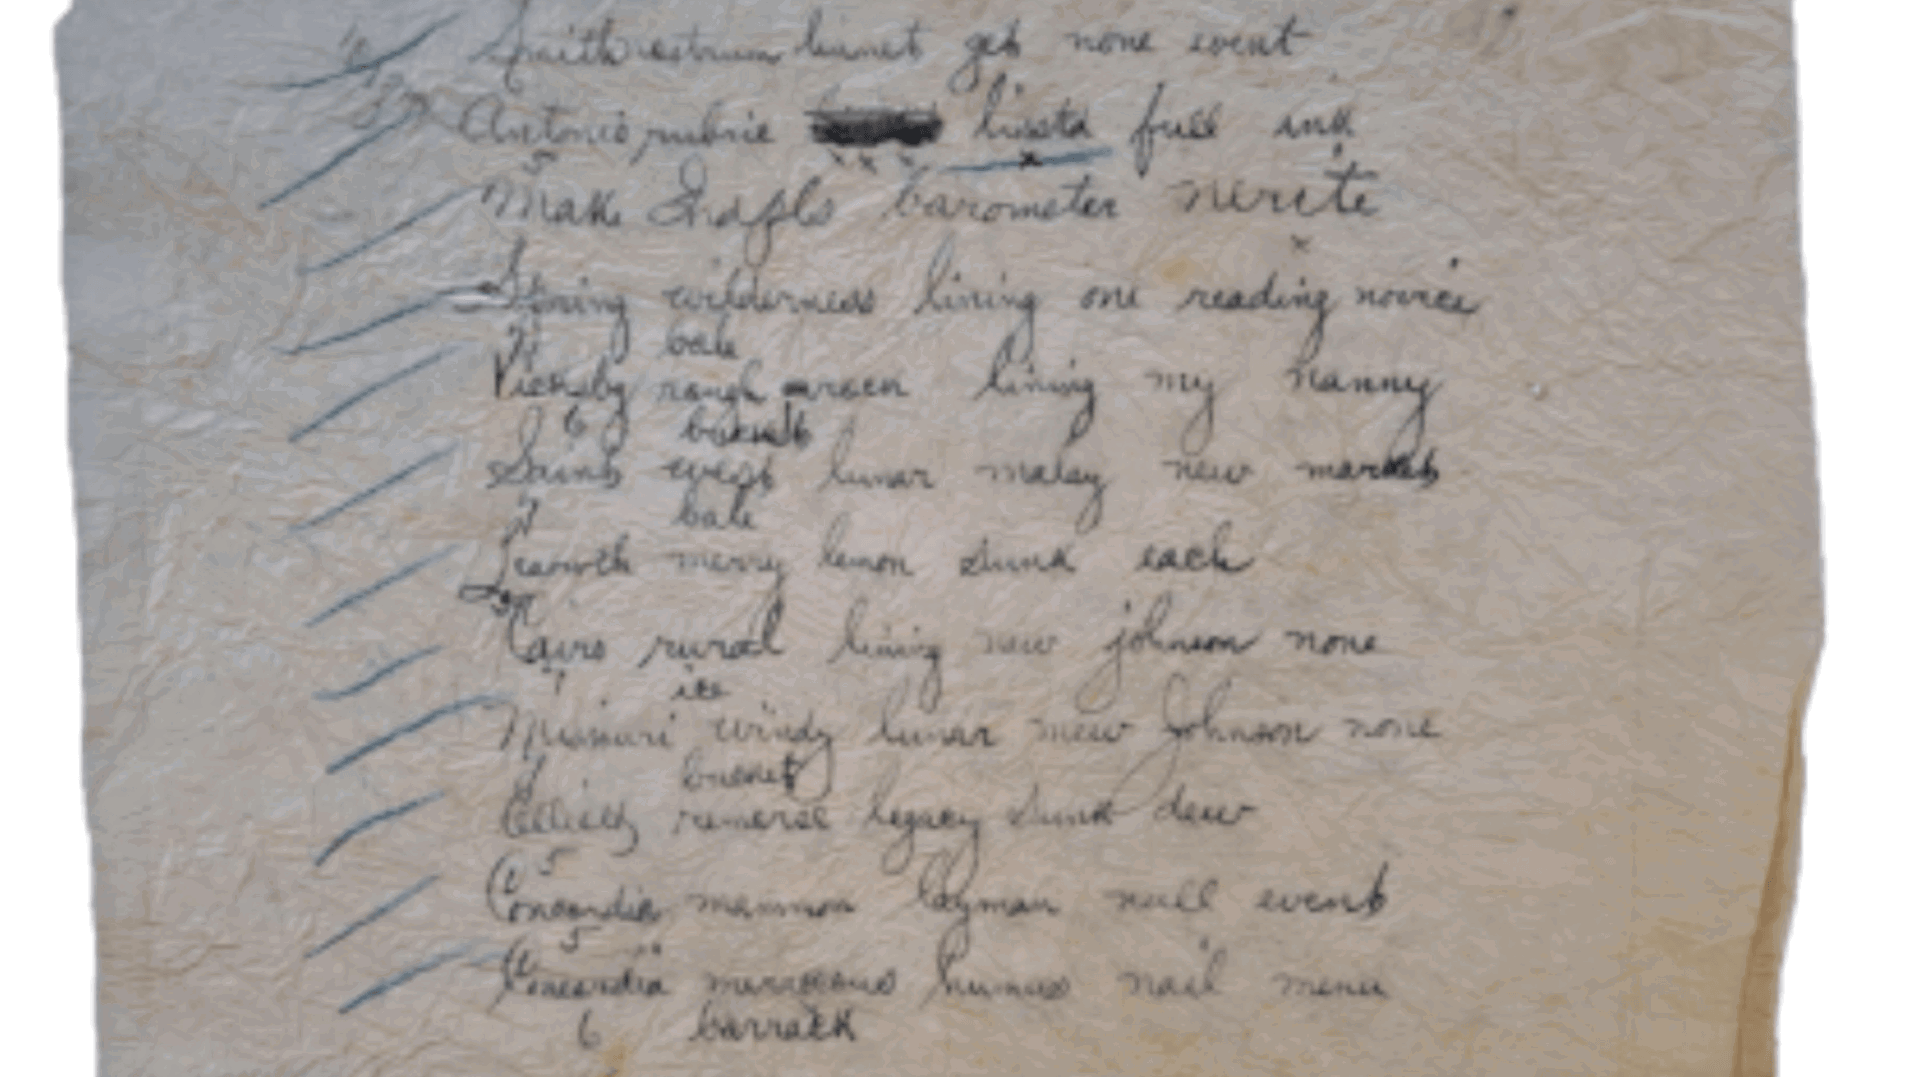 Smith nostrum linnet get none event
Antonio rubric lista full ink
Make Shafls barometer nerite
Spring wilderness lining one reading novice
bale
Vicksbg rough lining my nanny
6
Saint west lunar malay new market
bale
Leavwth merry lemon sunk each
Cairo rural lining new johnson none
1 ice
Missouri windy lunar mew Johnson none
bucket
remorse legacy sunk dew
5
Concordia mammon layman null event
5
Concordia humus nail menu
6 barrack